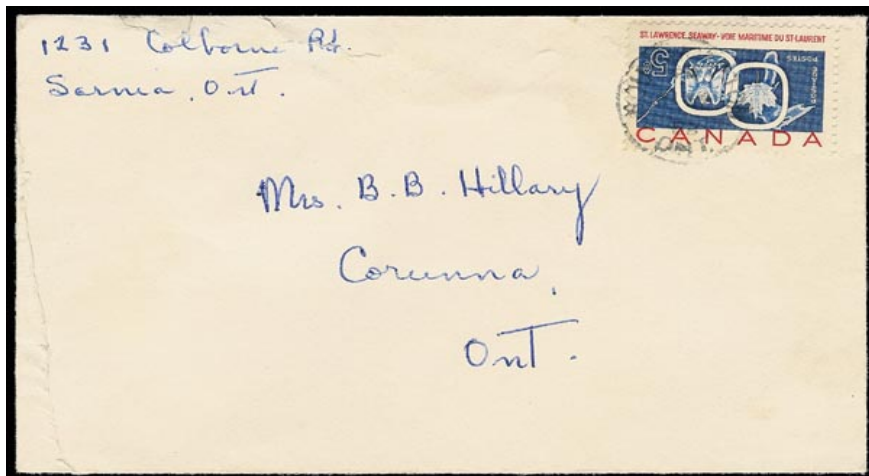 1231 Colborne Rd.
Sarnia, Ont.
ST. LAWRENCE SEAWAY - VOIE MARITIME DU ST-LAURENT
5¢
POSTES
POSTAGE
CANADA
ONT.
Mrs. B. B. Hillary
Corunna,
Ont.